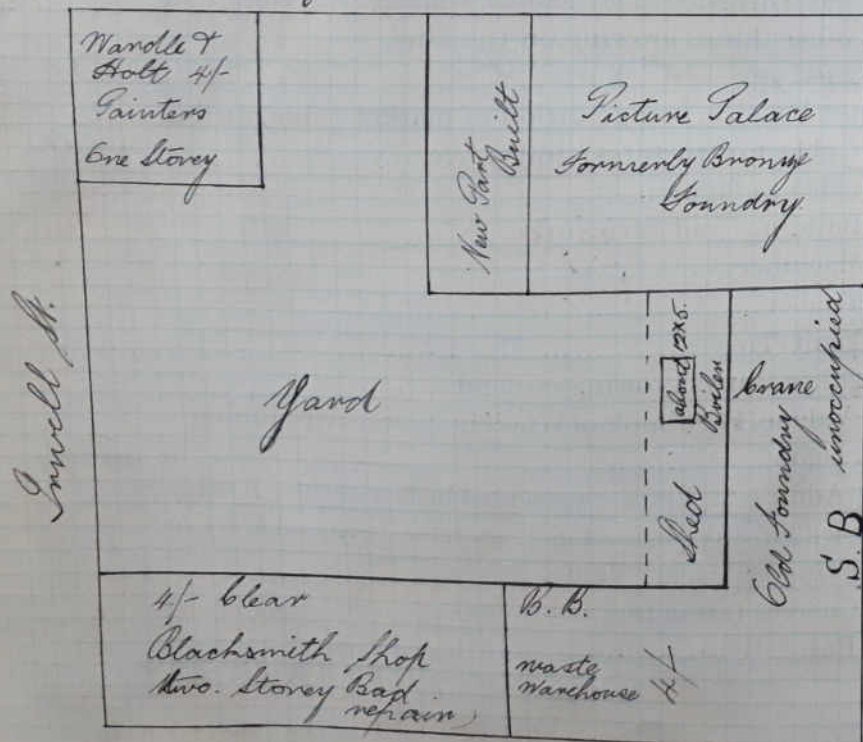 Wardle &
Holt 4/-
Painters
One Storey
New Part
Built
Picture Palace
Formerly Bronze
Foundry
Irwell St.
Yard
Shed
about 12x5.
Boiler
Crane
Old Foundry
unoccupied
S.B
4/- Clear
Blacksmith Shop
two. Storey Bad
repair,
B.B.
waste
Warehouse 4/-